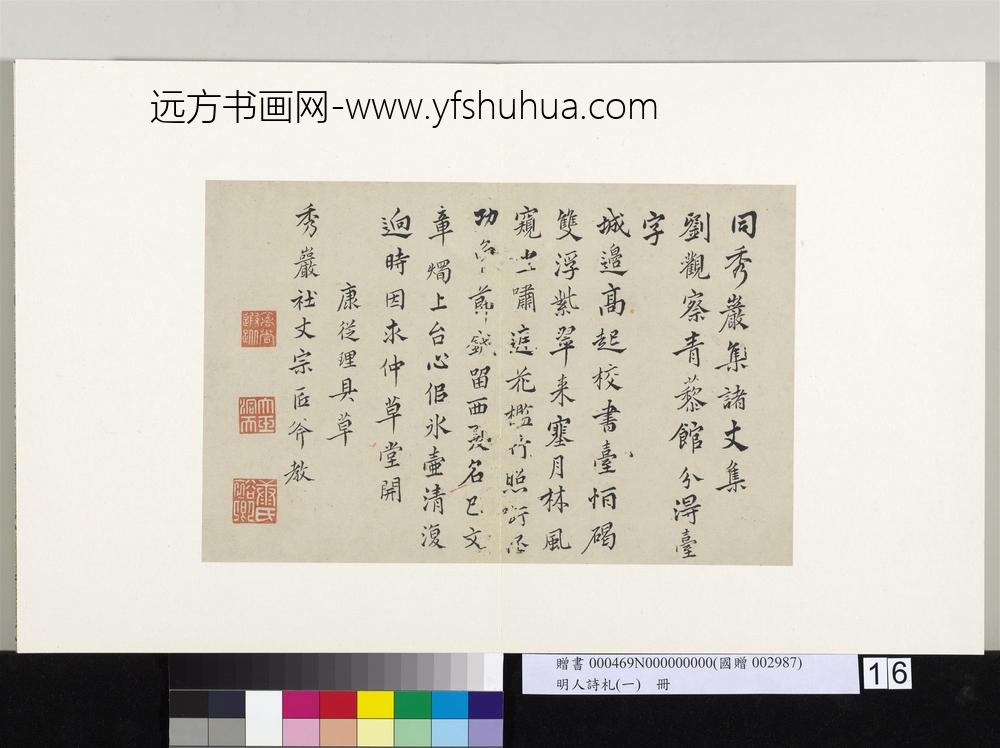 远方书画网-www.yfshuhua.com
同秀巖集諸丈集
劉觀察青藜館分得臺
字
城邉高起校書臺怕碣
雙浮紫翠来塞月林風
窺嘯花檻照
功留西名已文
章燭上台心佀氷壷清復
逈時因求仲草堂開
康從理具草
秀巖社丈宗匠斧教
贈書 000469N000000000(國贈 002987)
明人詩札(一) 冊
16